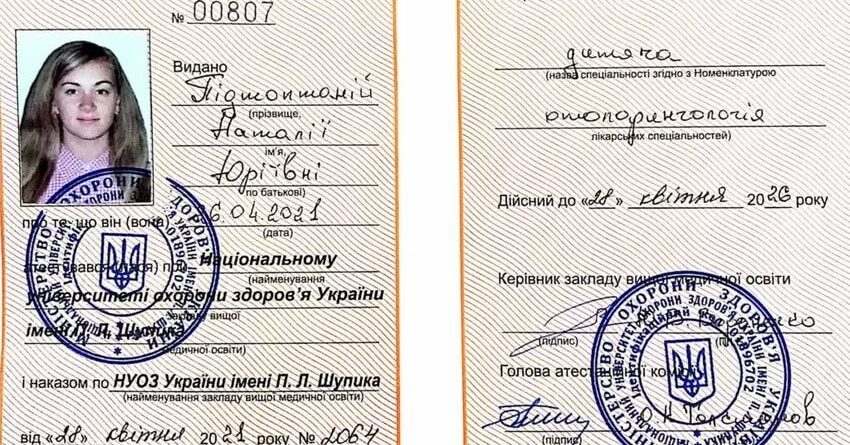 № 00807
Видано
Підтоптаній
(прізвище,
Наталії
ім'я,
Юріївні
по батькові)
6.04.2021
про те, що він (вона)
(дата)
атестувався(лася) при Національному
(найменування
університеті охорони здоров'я України
закладу вищої
імені П. Л. Шупика
медичної освіти)
і наказом по НУОЗ України імені П. Л. Шупика
(найменування закладу вищої медичної освіти)
від «28» квітня 2021 року № 2064
дитяча
(назва спеціальності згідно з Номенклатурою
отоларингологія
лікарських спеціальностей)
Дійсний до «28» квітня 2026 року
Керівник закладу вищої медичної освіти
(підпис)
Голова атестаційної комісії
(підпис)